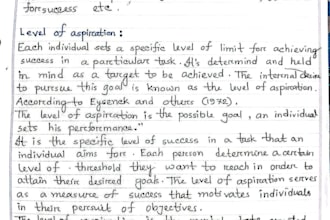 for success etc.
Level of aspiration :
Each individual sets a specific level of limit for achieving
success in a particular task. It's determind and held
in mind as a target to be achieved. The internal desire
to pursue this goal is known as the level of aspiration.
According to Eysenck and others (1972).
The level of aspiration is the possible goal, an individual
sets his performance."
It is the specific level of success in a task that an
individual aims for. Each person determine a certain
level of threshold they want to reach in order to
attain their desired goals. The level of aspiration serves
as a measure of success that motivates individuals
in their persuit of objectives.
The level of